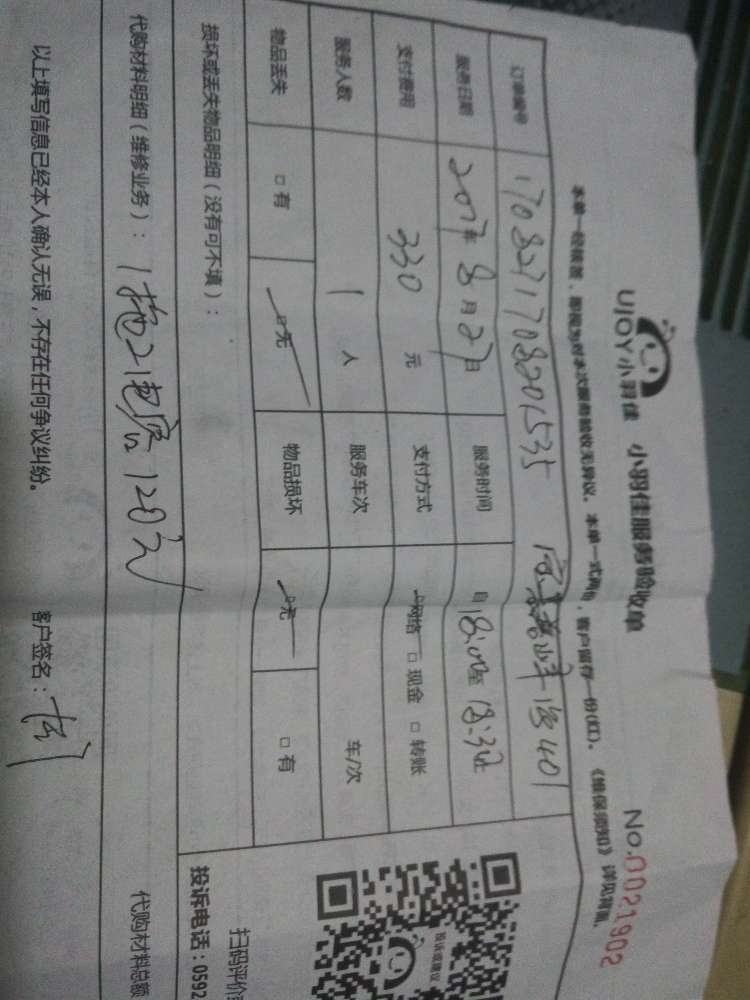 UJOY小羽佳 小羽佳服务验收单 No.0021902
本单一经签署，即视为对本次服务验收无异议。本单一式两份，客户留存一份(红)。《维保须知》详见背面。
订单编号 1708271708201535 401
服务日期 2017年8月27日 服务时间 自18:00至18:30
支付费用 330元 支付方式 网络 □现金 □转账
服务人数 1人 服务车次 车/次
物品丢失 □有 □无 物品损坏 □无 □有
损坏或丢失物品明细（没有可不填）：
代购材料明细（维修业务）：1拖2电容120元 代购材料总额
以上填写信息已经本人确认无误，不存在任何争议纠纷。 客户签名：
投诉或建议
扫码评价
投诉电话：0592